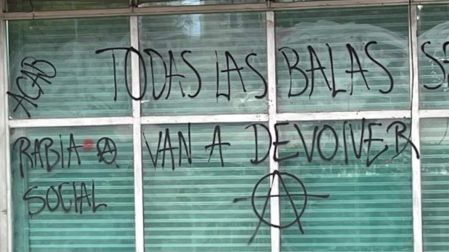 ACAB
TODAS LAS BALAS SE
VAN A DEVOLVER
RABIA
SOCIAL